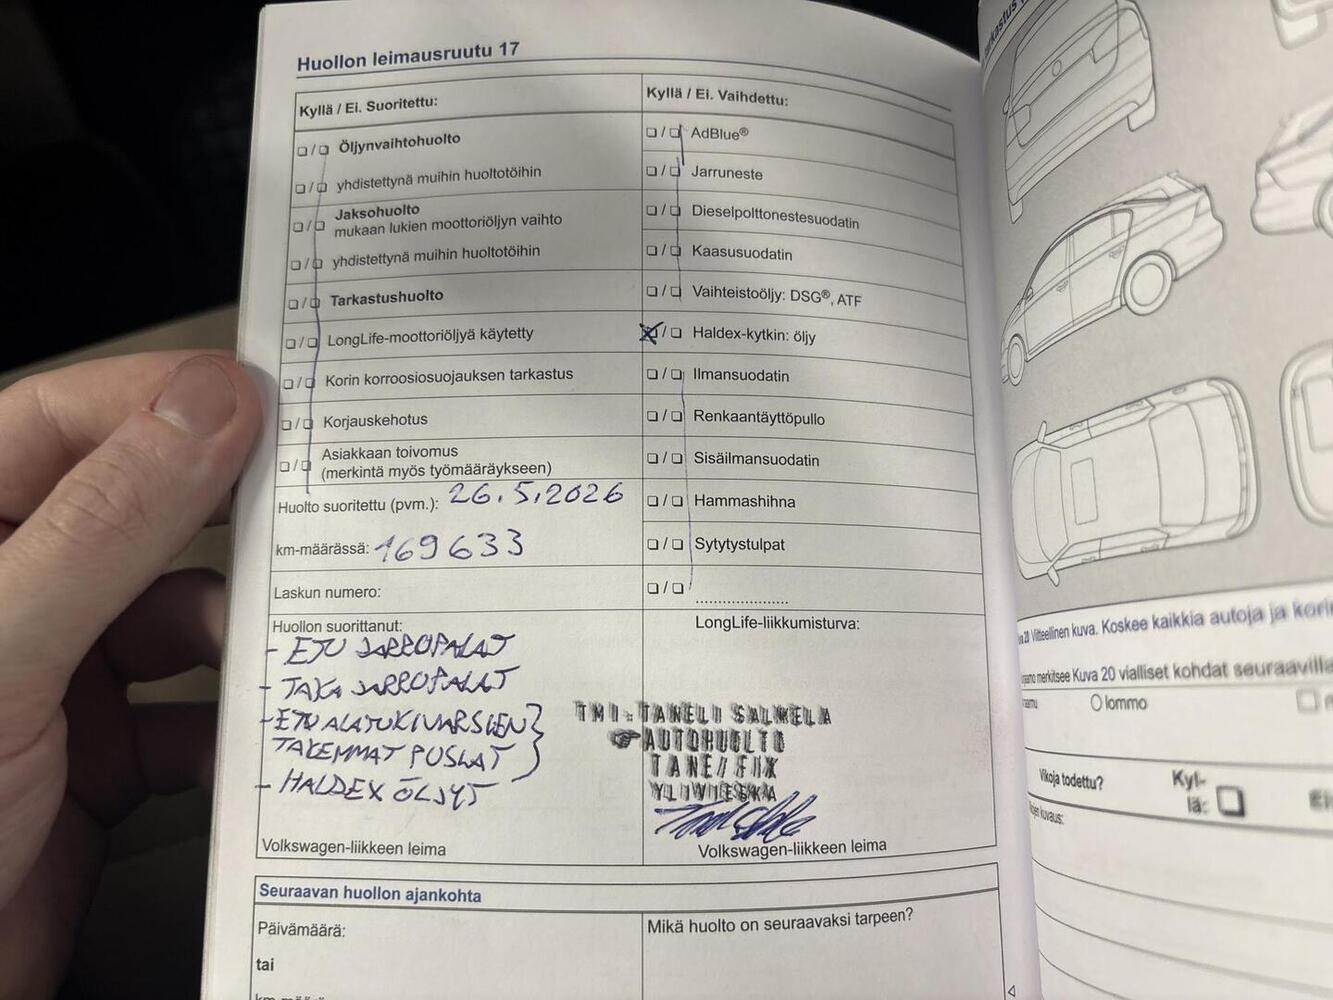 Huollon leimausruutu 17
Kyllä / Ei. Suoritettu:
Öljynvaihtohuolto
yhdistettynä muihin huoltotöihin
Jaksohuolto
mukaan lukien moottoriöljyn vaihto
yhdistettynä muihin huoltotöihin
Tarkastushuolto
LongLife-moottoriöljyä käytetty
Korin korroosiosuojauksen tarkastus
Korjauskehotus
Asiakkaan toivomus
(merkintä myös työmääräykseen)
Huolto suoritettu (pvm.): 26.5.2026
km-määrässä: 169633
Laskun numero:
Kyllä / Ei. Vaihdettu:
AdBlue®
Jarruneste
Dieselpolttonestesuodatin
Kaasusuodatin
Vaihteistoöljy: DSG®, ATF
Haldex-kytkin: öljy
Ilmansuodatin
Renkaantäyttöpullo
Sisäilmansuodatin
Hammashihna
Sytytystulpat
....................
Huollon suorittanut:
- ETU JARRUPALAT
- TAKA JARRUPALAT
- ETU ALATUKIVARSIEN
TAKEMMAT PUSLAT
- HALDEX ÖLJYT
Volkswagen-liikkeen leima
LongLife-liikkumisturva:
TMI. TANELI SALMELA
AUTOHUOLTO
TANE/FIX
YLIVIESKA
Volkswagen-liikkeen leima
Seuraavan huollon ajankohta
Päivämäärä:
tai
Mikä huolto on seuraavaksi tarpeen?
Viitteellinen kuva. Koskee kaikkia autoja ja
merkitsee Kuva 20 vialliset kohdat
lommo
Vikoja todettu?
Kyl-
lä: